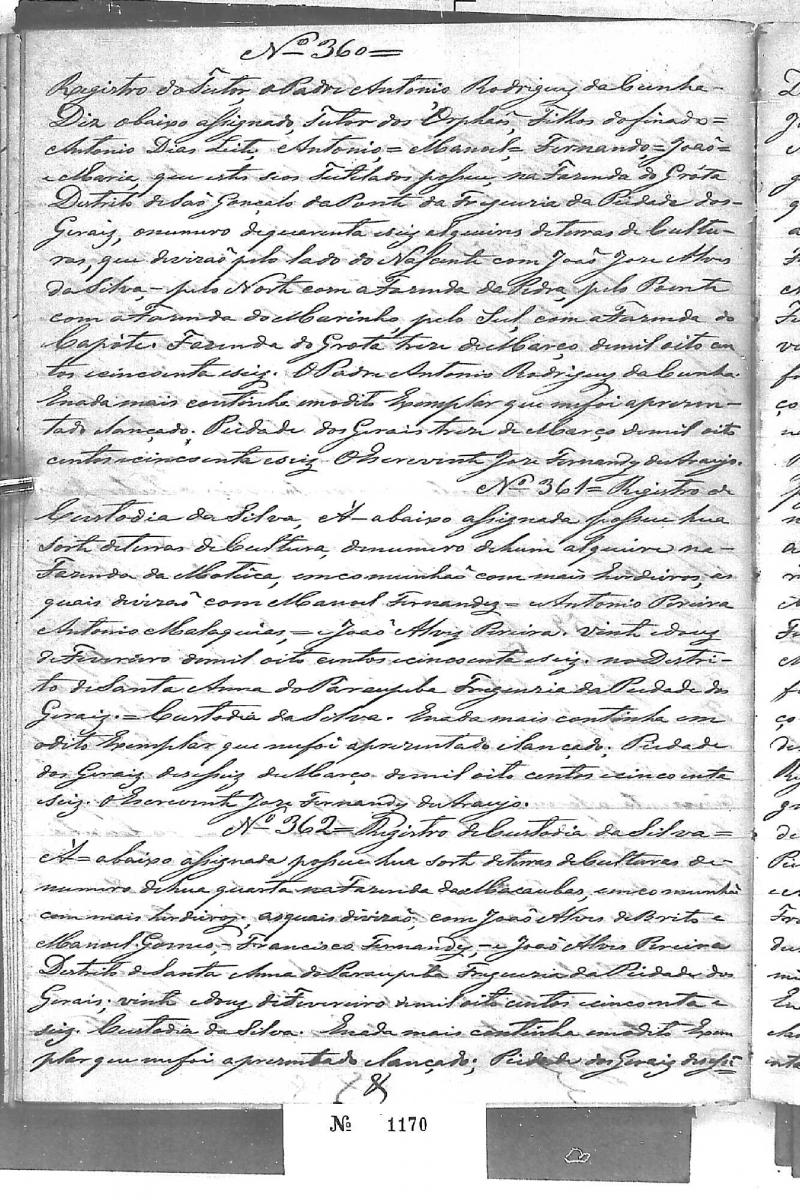 Nº 360=
Registro do Tutor o Padre Antonio Rodriguez da Cunha-
Diz abaixo assignado, Tutor dos Orphaõs, Filhos do finado=
Antonio Dias Leite, Antonio,= Manoel,= Fernando,= Joaõ=
e Maria, que estes seos Tutilados possue, na Fazenda do Gróta
Destrito de Saõ Gonçalo da Ponte da Freguezia da Piedade dos-
Geraiz, onumero de quarenta eseiz alqueires deterras de Cultu-
ras, que divizaõ pelo lado do Nascente com Joaõ Joze Alves
da Silva,- pelo Norte com a Fazenda da Pedra, pelo Poente
com a Fazenda do Marinho, pelo Sul, com a Fazenda do
Capóte. Fazenda do Grota treze de Março demil oito cen
tos ecincoenta eseiz. O Padre Antonio Rodriguez da Cunha.
Enada mais continha emodito Exemplar que mefoi aprezen-
tado elançado. Piedade dos Gerais treze de Março demil oito
centos ecincoenta eseiz. OEscrevente Joze Fernandez de Araujo.
Nº 361= Registro de
Custodia da Silva, A- abaixo assignada possue hua
sorte deterras de Cultura, denumero dehum alqueire na-
Fazenda da , emcomunhaõ com mais herdeiros, as
quais divizaõ com Manoel Fernandez= e Antonio Pereira
Antonio Malaquias,= e Joaõ Alvez Pereira. vinte edouz
deFevereiro demil oito centos ecincoenta eseiz. no Destri-
to deSanta Anna do Paraupeba Freguezia da Piedade dos
Geraiz.= Custodia da Silva. Enada mais continha em
odito Exemplar que mefoi aprezentado elançado. Piedade
dos Geraiz deseseiz deMarço demil oito centos ecincoenta
eseiz. OEscrevente Joze Fernandez de Araujo.
Nº 362= Registro de Custodia da Silva=
A= abaixo assignada possue hua sorte deterras de Culturas de-
numero dehua quarta na Fazenda das Macaubas, emcomunhaõ
com mais herdeiros, asquais divizaõ, com Joaõ Alves deBrito e
Manoel Gomes,- Francisco Fernandez,- e Joaõ Alves Pereira
Destrito de Santa Anna do Paraupeba Freguezia da Piedade dos
Gerais, vinte edouz deFevereiro demil oito centos ecincoenta e
seiz. Custodia da Silva. Enada mais continha emodito Exem
plar que mefoi aprezentado elançado; Piedade dos Geraiz desesei
Nº 1170